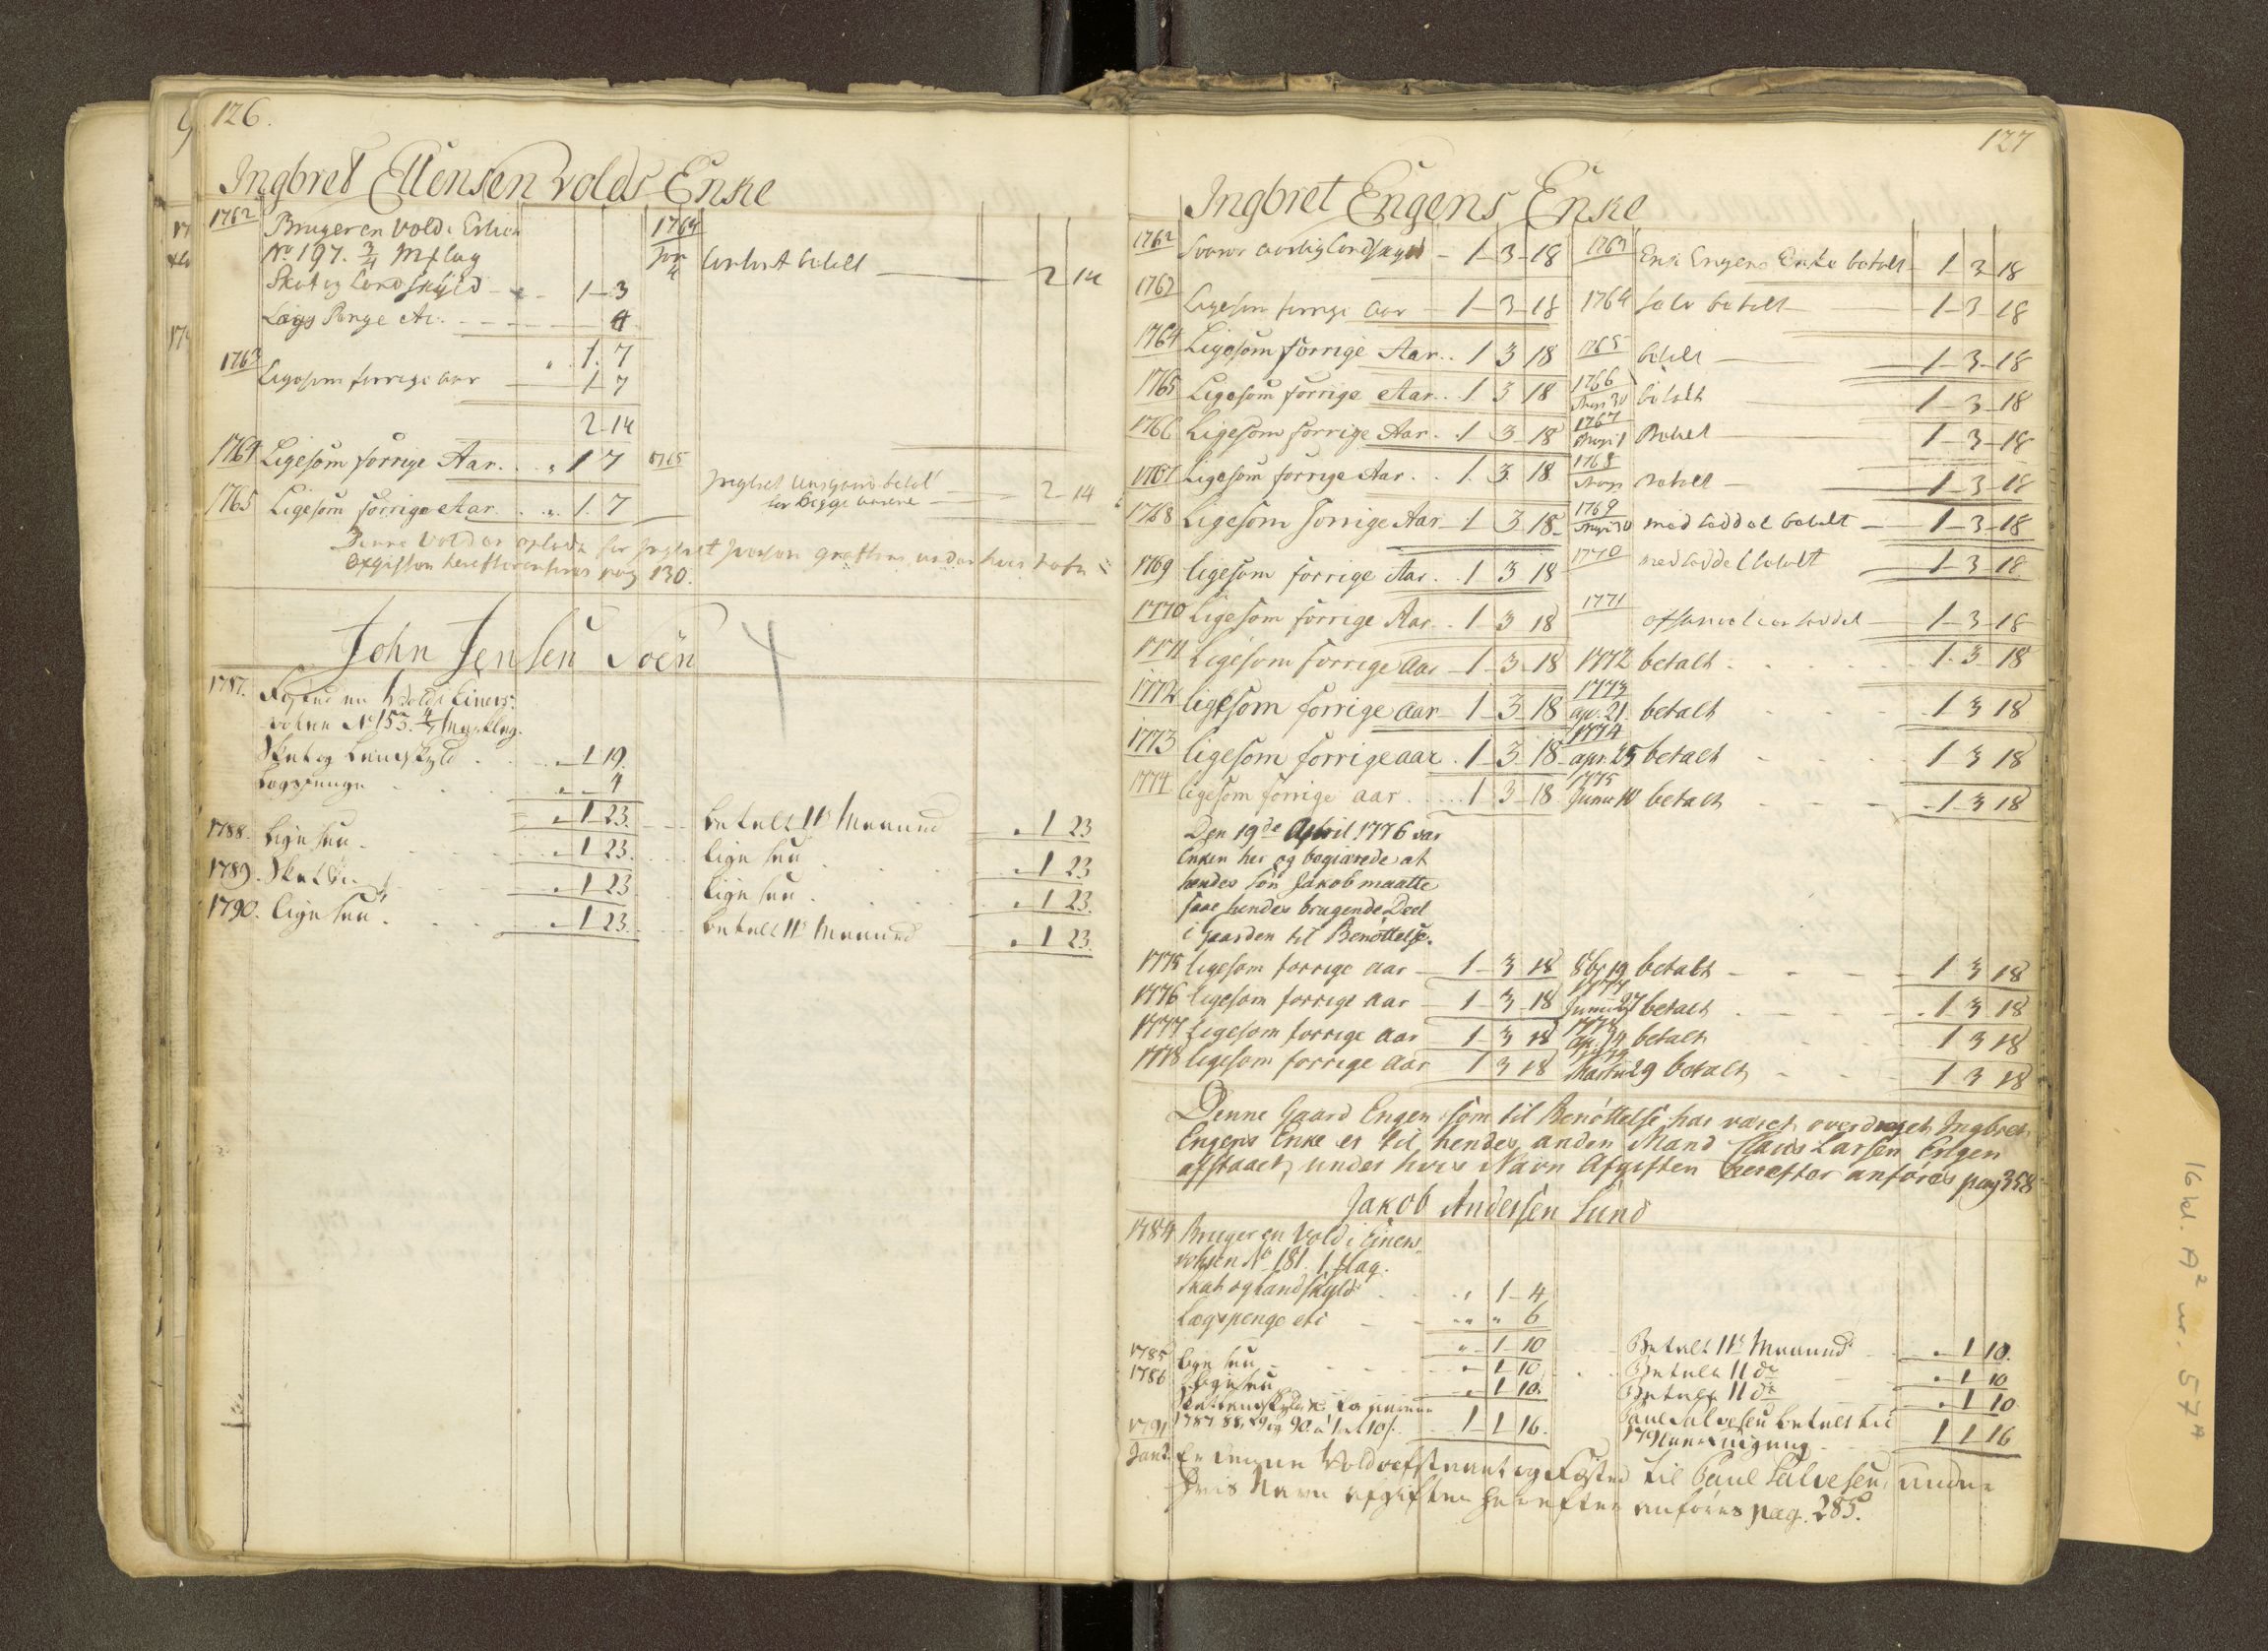 126.
Ingbret Ellensen Volds Enke
1762 Bruger en Vold i
No 197. 3/4
Skat og Landskyld 1-3
Lægs Penge etc. 4
1.7
1763 Ligesom forrige aar 1 7
2-14
1764
betalt 2 14
1764 Ligesom forrige Aar. 1 7
1765 Ligesom forrige Aar. 1. 7
1765 betalt
for begge aarene 2-14
Denne Vold er
pag 130.
John Jensen Söen
4
1787. Fæsted en Vold i Einers-
volsen No 153.
Skat og Landskyld 1 19.
Lægspenge 4
1 23. betalt 11te Maaned 1 23
1788. lige saa 1 23. lige saa 1 23
1789. Skat &c. 1 23 lige saa 1 23.
1790. lige saa 1 23. betalt 11te Maaned 1 23.
127
Ingbret Engens Enke
1762 Svarer aarlig landskyld 1-3-18 1763 Enke betalt 1-3-18
1763 Ligesom forrige aar 1-3-18 1764 selv betalt 1-3-18
1764 Ligesom forrige Aar.. 1 3 18 1765 betalt 1-3-18
1765 Ligesom forrige Aar.. 1 3 18 1766 betalt 1-3-18
1766 Ligesom forrige Aar. 1 3-18 1767 Betalt 1-3-18
1767 Ligesom forrige Aar.. 1. 3. 18 1768 betalt 1-3-18
1768 Ligesom forrige Aar 1 3 18 1769 med seddel betalt 1-3-18
1769 ligesom forrige Aar.. 1 3 18 1770 med seddel betalt 1-3-18
1770 Ligesom forrige Aar.. 1 3 18 1771 seddel 1-3-18
1771 Ligesom forrige Aar 1-3-18 1772 betalt 1-3-18
1772 ligesom forrige aar 1-3-18 1773 ap. 21. betalt 1 3 18
1773 ligesom forrige aar 1-3-18 1774 apr. 25 betalt 1 3 18
1774 ligesom forrige aar 1-3-18 1775 Junii 10 betalt 1 3 18
Den 19de April 1776 var
Enken her og begiærede at
hendes Sön Jakob maatte
faae hendes brugende Deel
i gaarden til Benöttelse.
1775 ligesom forrige aar 1-3 18 8br 19 betalt 1 3 18
1776 ligesom forrige aar 1-3-18 1777 Junii 27 betalt 1 3 18
1777 ligesom forrige aar 1-3 18 1778 ap. 14 betalt 1 3 18
1778 ligesom forrige aar 1 3 18 Martii 29 betalt 1 3 18
Denne Gaard Engen som til Benöttelse har været overdraget Ingbret
Engens Enke er til hendes anden Mand Claus Larsen Engen
afstaaet, under hvis Navn Afgiften herefter anföres pag 358
Jakob Andersen Lund
1784 Bruger en Vold i Einers-
volsen No 181. 1 flag.
Skat og Landskyld 1-4
Lægspenge etc 6
1-10 Betalt 11te Maaned 1 10.
1785 lige saa 1 10 Betalt 11 do 1 10
1786 lige saa 1 10. Betalt 11 do 1 10
Skat Landskyld &c for aarene
1787 88, 89 og 90 a 1 ort 10 s. 1-1-16. Paul Salvesen betalt til
1791 1 1 16
1791
Jan 2. Er denne Vold afstaaet og Fæsted til Paul Salvesen, under
hvis Navn afgiften herefter anföres pag. 285.
16 kl. A² nr. 57A